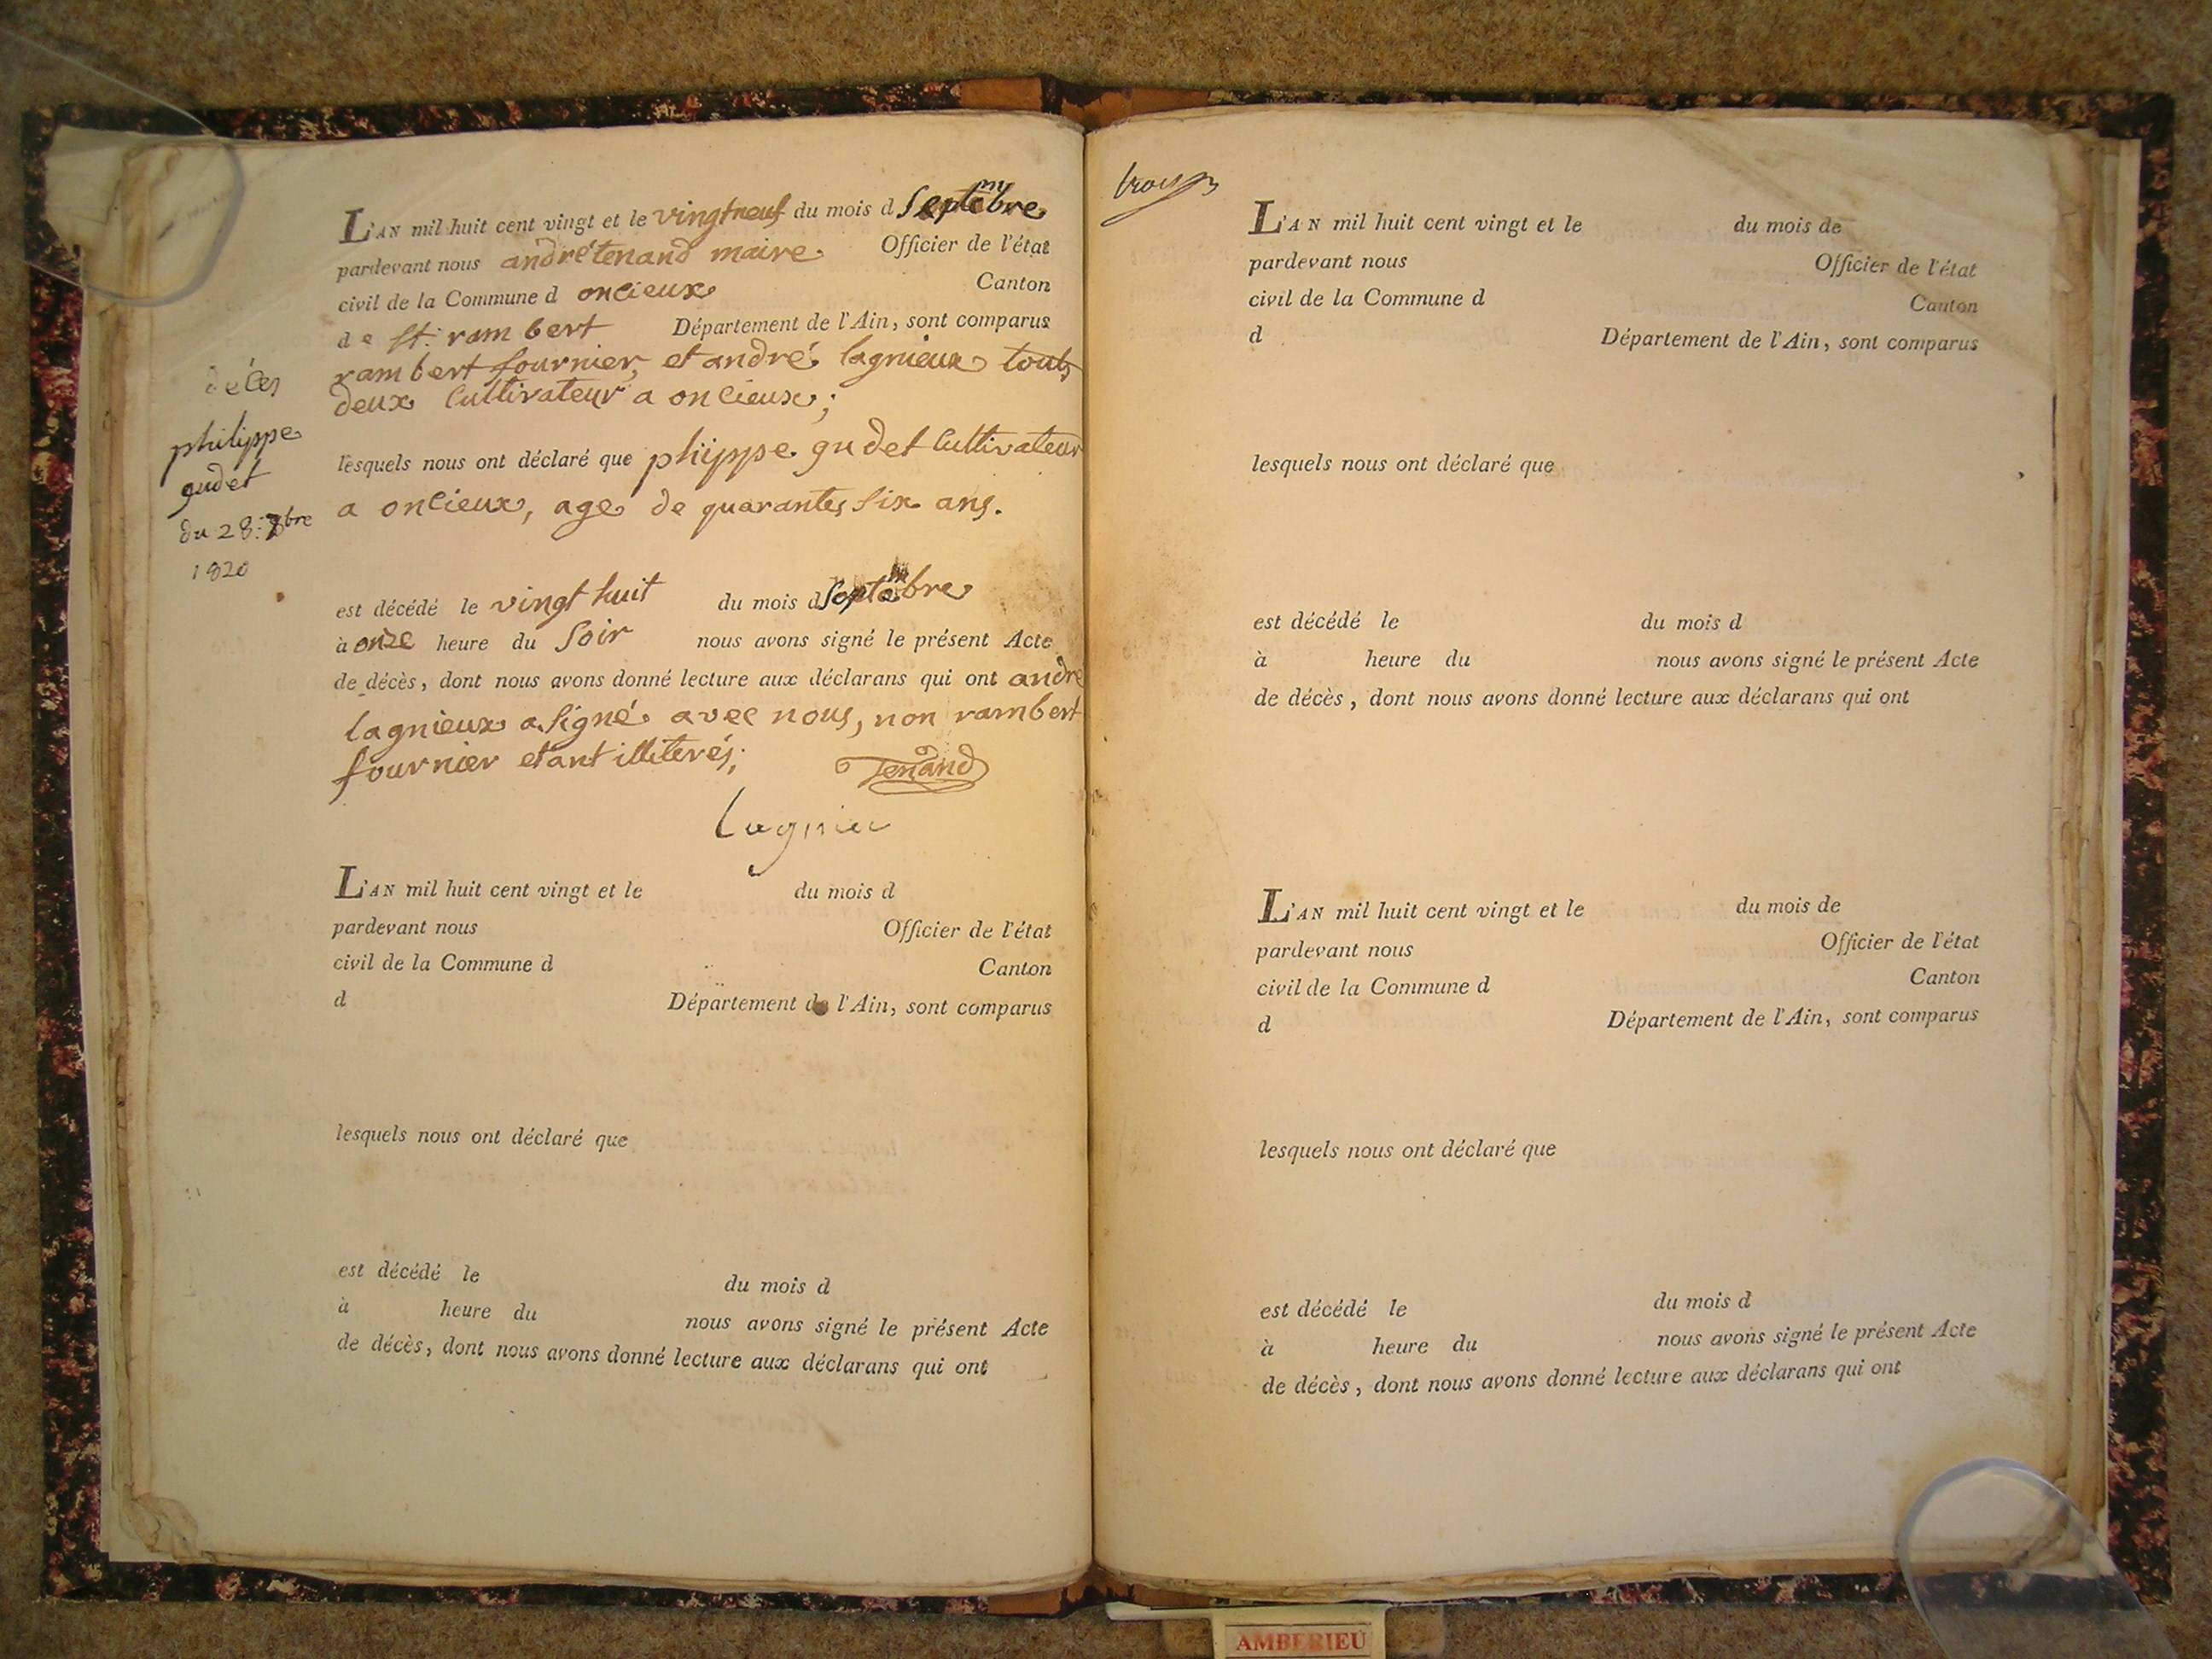 L'AN mil huit cent vingt et le vingtneuf du mois d Septembre
pardevant nous andré tenand maire Officier de l'état
civil de la Commune d oncieux Canton
de St. rambert Département de l'Ain, sont comparus
rambert fournier, et andré lagnieux touts
deux Cultivateur a oncieux;
lesquels nous ont déclaré que phippe gudet Cultivateur
a oncieux, age de quarantes six ans.
est décédé le vingt huit du mois d Septembre
à onze heure du Soir nous avons signé le présent Acte
de décès, dont nous avons donné lecture aux déclarans qui ont andré
lagnieux a signé avec nous, non rambert
fournier etant illiterés;
Tenand
Lagnieu
décès
philippe
gudet
du 28: 7bre
1820
L'AN mil huit cent vingt et le du mois d
pardevant nous Officier de l'état
civil de la Commune d Canton
d Département de l'Ain, sont comparus
lesquels nous ont déclaré que
est décédé le du mois d
à heure du nous avons signé le présent Acte
de décès, dont nous avons donné lecture aux déclarans qui ont
L'AN mil huit cent vingt et le du mois de
pardevant nous Officier de l'état
civil de la Commune d Canton
d Département de l'Ain, sont comparus
lesquels nous ont déclaré que
est décédé le du mois d
à heure du nous avons signé le présent Acte
de décès, dont nous avons donné lecture aux déclarans qui ont
L'AN mil huit cent vingt et le du mois de
pardevant nous Officier de l'état
civil de la Commune d Canton
d Département de l'Ain, sont comparus
lesquels nous ont déclaré que
est décédé le du mois d
à heure du nous avons signé le présent Acte
de décès, dont nous avons donné lecture aux déclarans qui ont
AMBERIEU